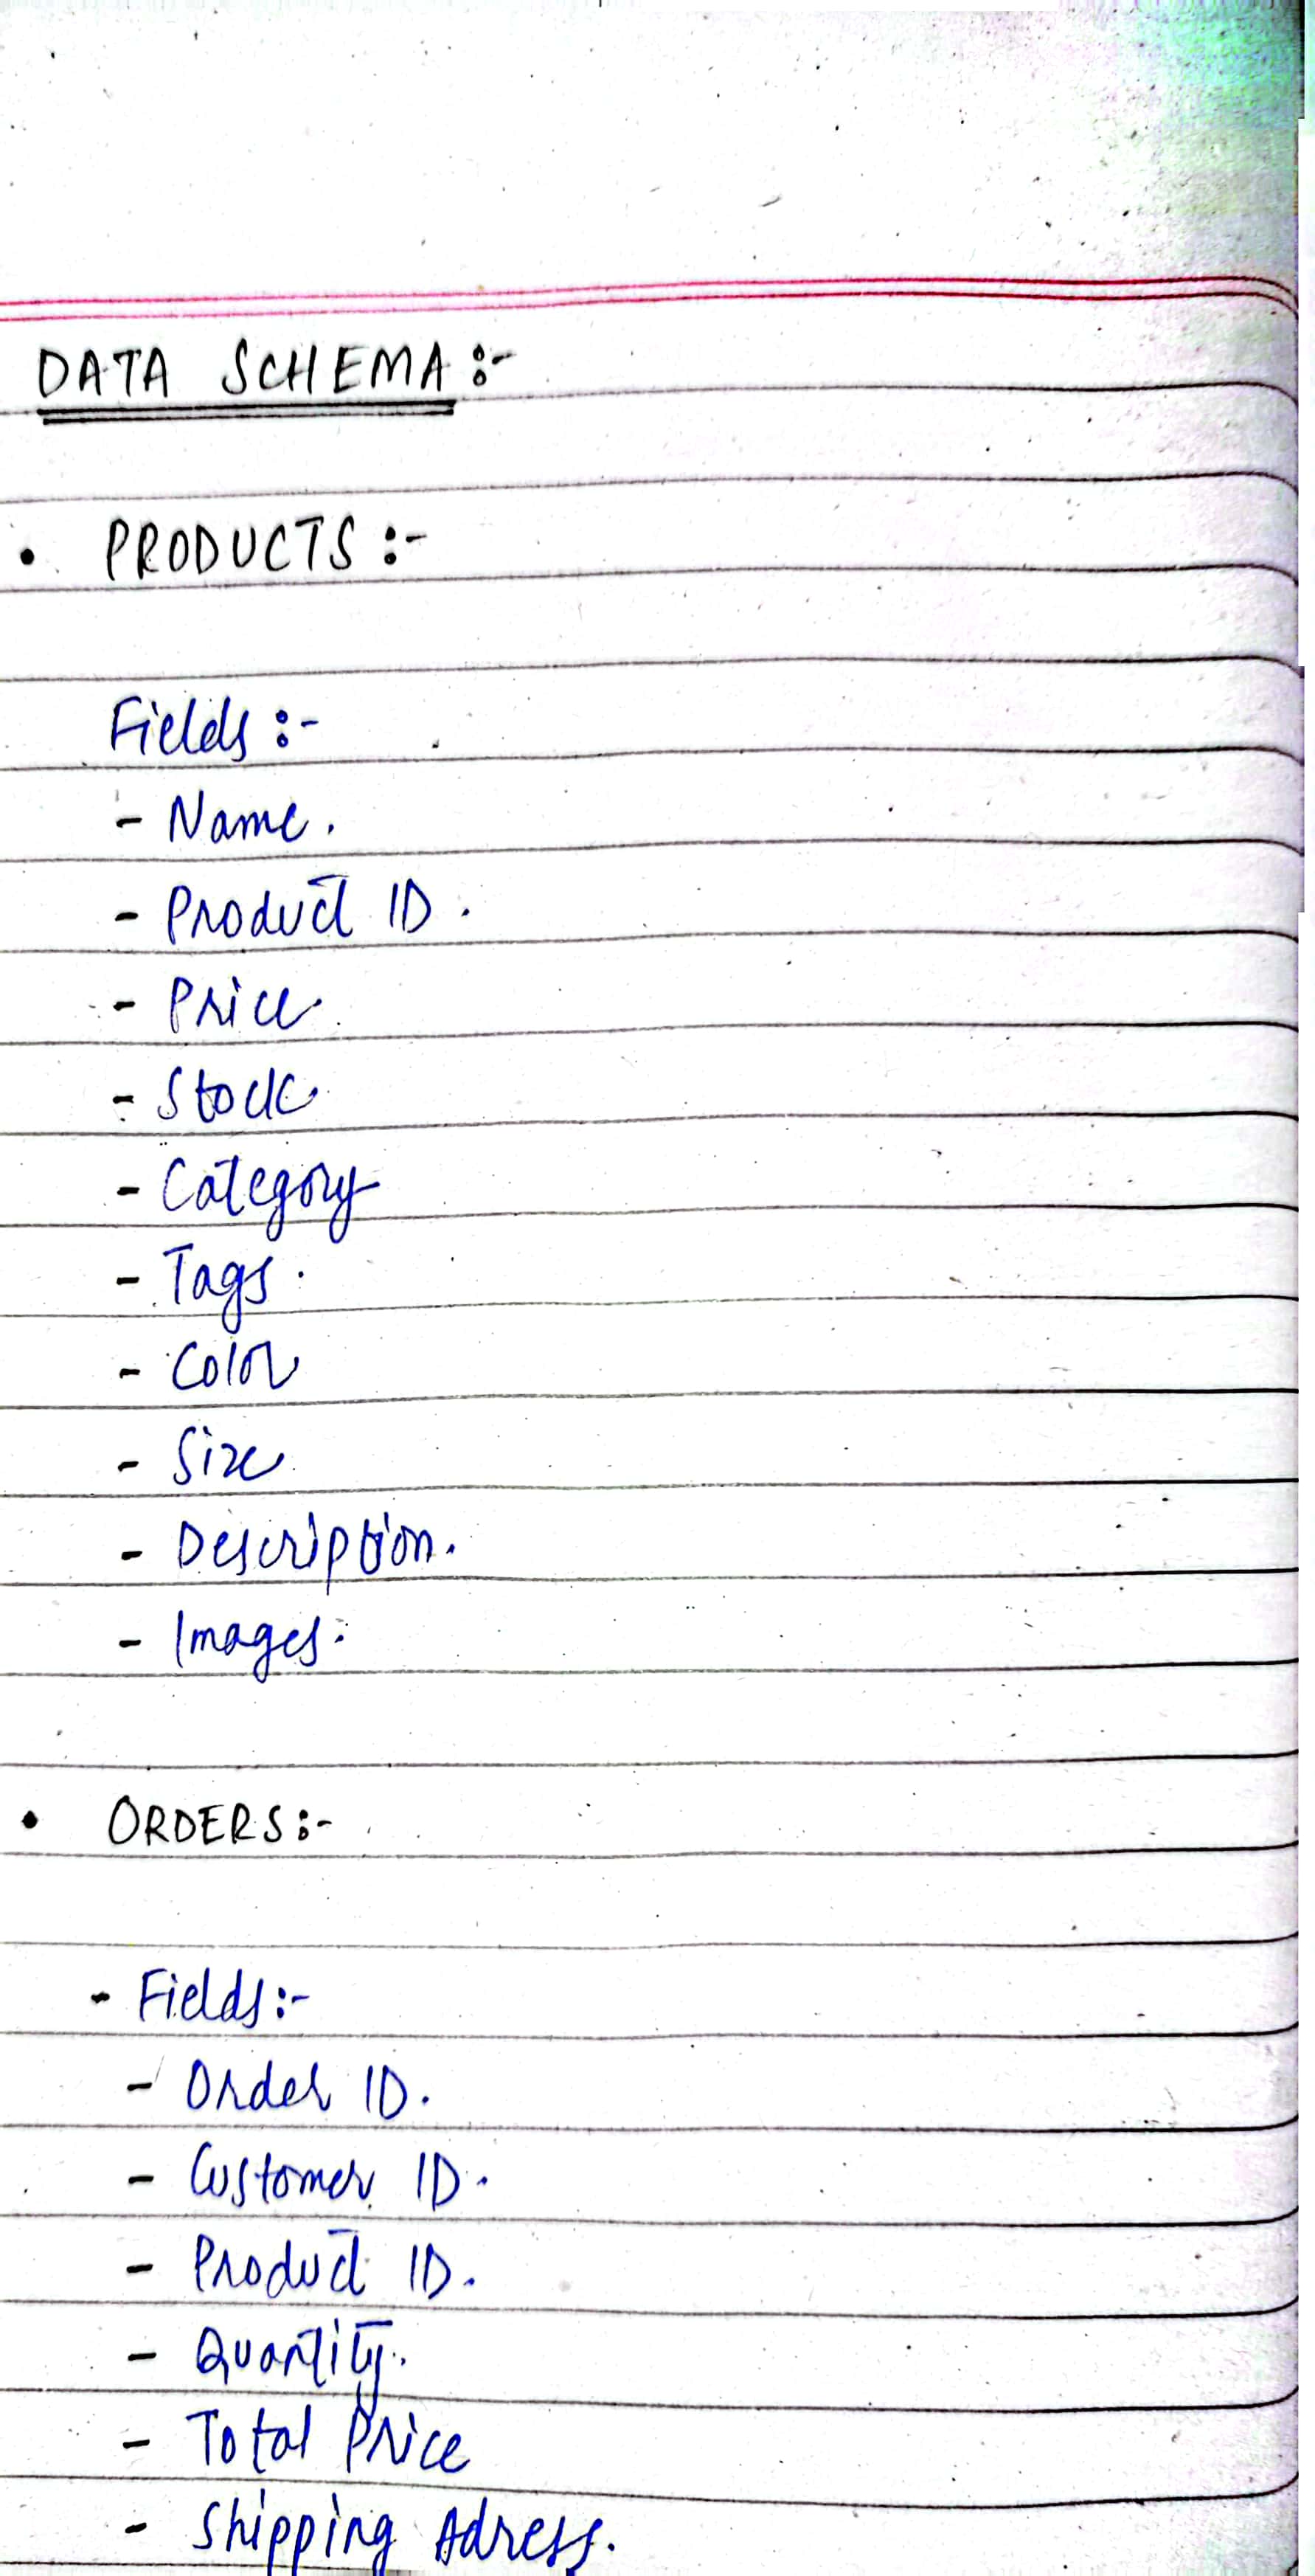 DATA SCHEMA :-
• PRODUCTS :-
Fields :-
- Name.
- Product ID.
- Price.
- Stock.
- Category
- Tags.
- Color
- Size.
- Description.
- Images.
• ORDERS :-
- Fields :-
- Order ID.
- Customer ID.
- Product ID.
- Quantity.
- Total Price
- Shipping Adress.